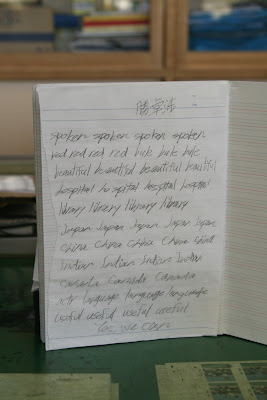 spoken spoken spoken spoken
red red red red bule bule bule
beautiful beautiful beautiful beautiful
hospital hospital hospital hospital
library library library library
Japan Japan Japan Japan Japan
China China China China China
Indian Indian Indian Indian
Canada Canada Canada
language language language
useful useful useful useful
Yes we can.